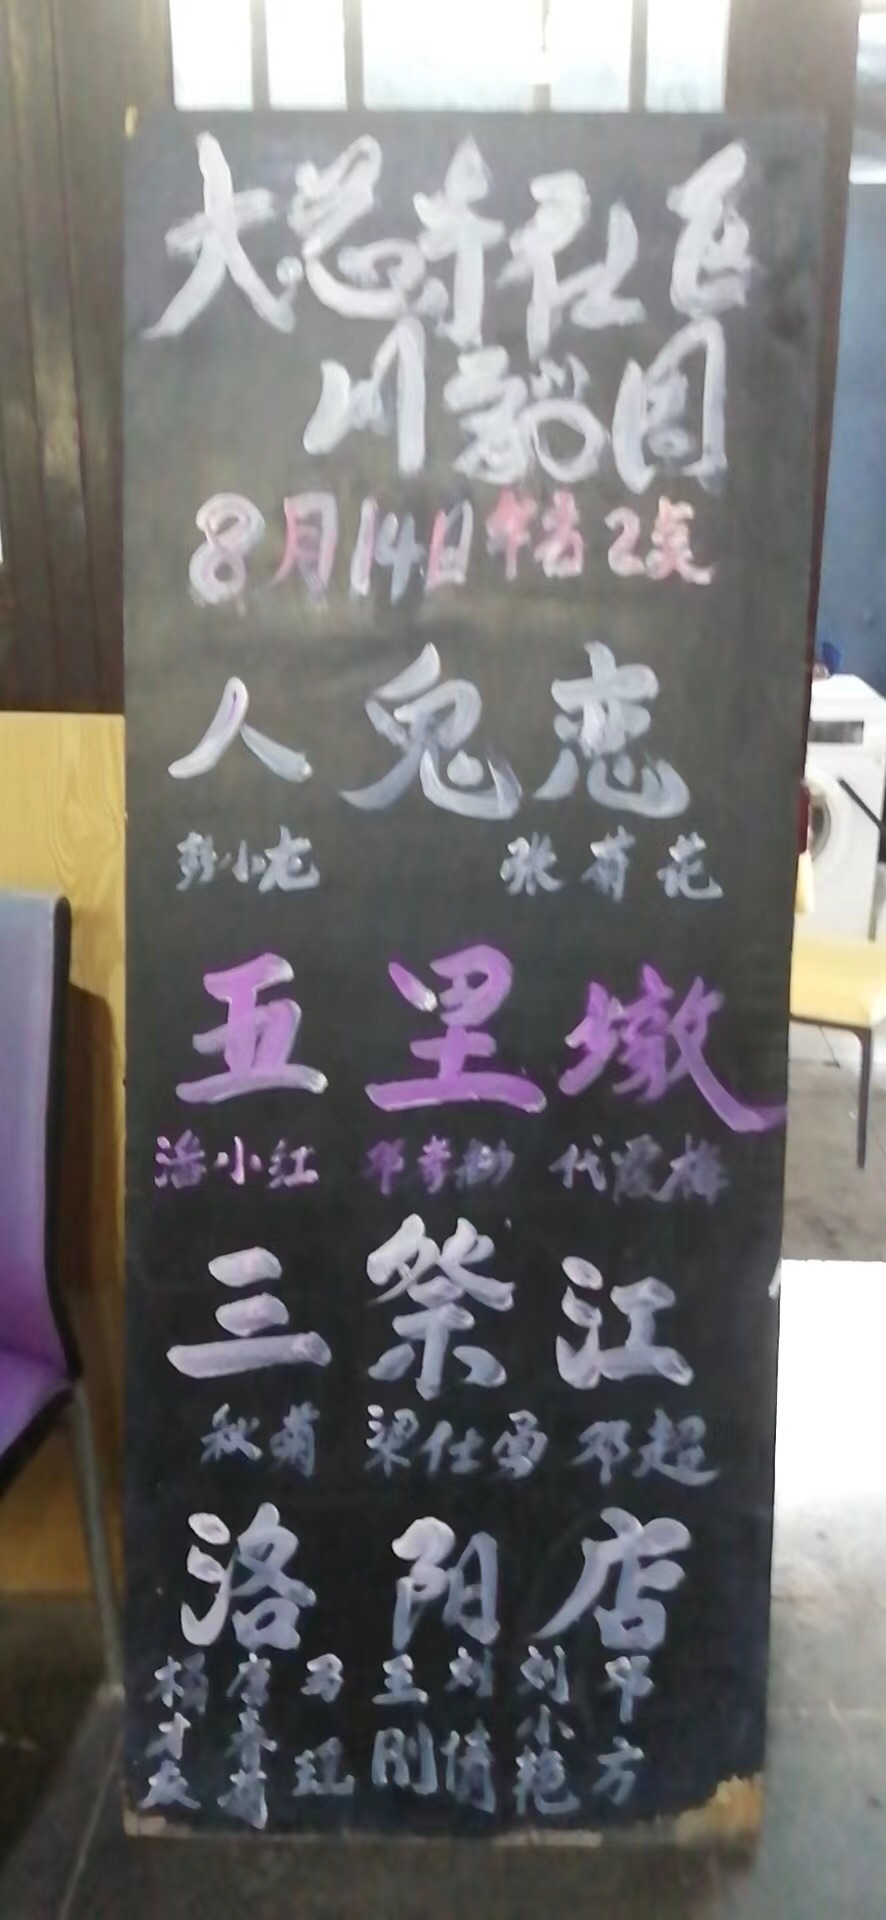 大慈寺社区
川剧团
8月14日午后2点
人鬼恋
彭小龙 张菊花
五里墩
潘小红 邓孝 代霞梅
三祭江
秋菊 梁仕勇 邓超
洛阳店
杨才友 唐春菊 马现 王刚 刘倩 刘小艳 邓方